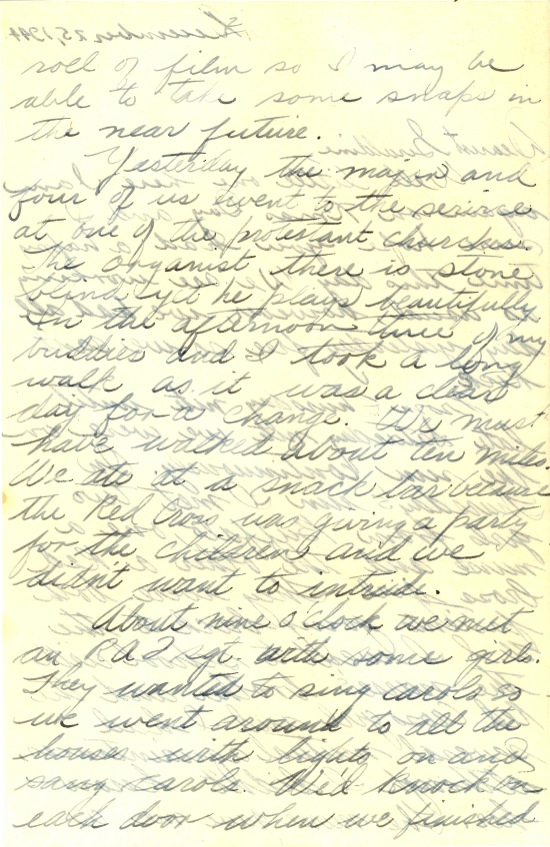 roll of film so I may be
able to take some snaps in
the near future.
Yesterday the major and
four of us went to the service
at one of the protestant churches.
The organist there is stone
blind, yet he plays beautifully
In the afternoon three of my
buddies and I took a long
walk as it was a clear
day for a change. We must
have walked about ten miles.
We ate at a snack bar because
the Red Cross was giving a party
for the children and we
didn't want to intrude.
About nine o'clock we met
an RAF sgt. with some girls.
They wanted to sing carols so
we went around to all the
houses with lights on and
sang carols. We'd knock on
each door when we finished